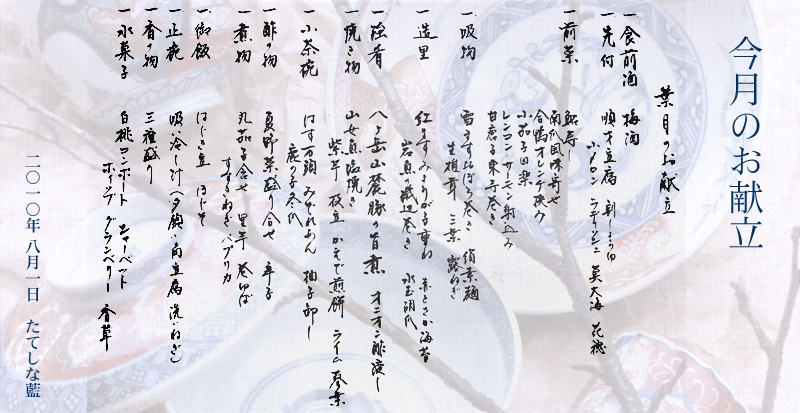 今月のお献立
葉月のお献立
一食前酒 梅酒
一先付 順才豆腐 割しょうゆ
小メロン ラディッシュ 莫大海 花穂
一前菜 鮎寿し
南瓜風味寄せ
合鴨オレンヂ挟み
小茄子田楽
レンコンサーモン射込み
甘唐辛子東寺巻き
一吸物 雪ます比ばら巻き 絹素麺
生椎茸 三葉 露ねぎ
一造里 紅ますみょうが子重ね 赤とさか海苔
岩魚の磯辺巻き 水玉胡瓜
一強肴 八ヶ岳山麓豚の旨煮 オニオン酢浸し
一焼き物 山女魚塩焼き
紫芋 枝豆 かえで煎餅 ライム 蓼
一小茶碗 はす万頭 みぞれあん 柚子卸し
鹿の子巻瓜
一酢の物 夏野菜盛り合せ 辛子
一煮物 丸茄子合せ 里芋 巻ゆば
すすきねぎ パプリカ
一御飯 はじき豆 ほじそ
一止椀 吸い冷し汁(夕顔、角豆腐 洗いねぎ)
一香の物 三種盛り
一水菓子 白桃コンポート シャーベット
ホイップ クランベリー 香草
二〇一〇年 八月一日 たてしな藍